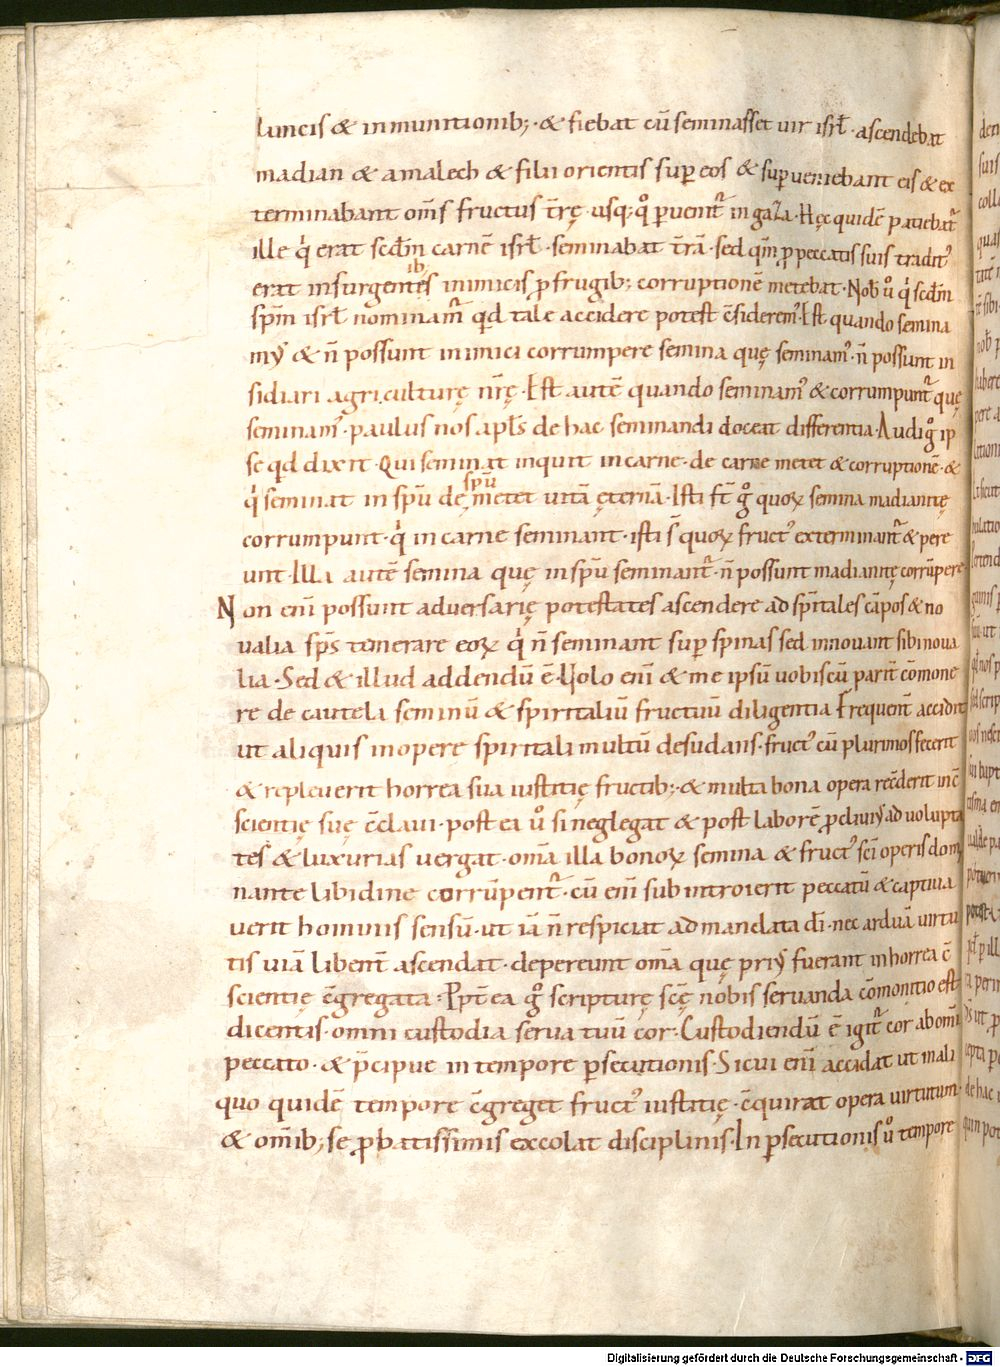 luncis & inmunitionib; · & fiebat cū seminasset uir isrƚ · ascendebat
madian & amalech & filii orientis sup̱ eos & sup̱ueniebant eis & ex
terminabant om̄s fructus t̄rę · usq; q̊ p̱uenit̄ in gaza · Hęc quidē patiebat᷑
ille q̇ erat scd̄m carnē isrƚ · seminabat t̄rā · sed qm̄ p̱ peccatis suis tradit᷒
erat insurgentes ib; inimicis p̱ frugib; corruptionē metebat · Nob̄ ů q̇ scd̄m
sp̄m isrƚ nominam᷑ qd̄ tale accidere potest c̄siderem᷒ · Est quando semina
m᷒ & n̄ possunt inimici corrumpere semina quę seminam᷒ · n̄ possunt in
sidiari agriculturę nr̄ę · Est autē quando seminam᷒ & corrumpunt᷑ quę
seminam᷒ · paulus nos apƚs de hac seminandi doceat differentia · Audi g̊ ip
se qd̄ dixit · Qui seminat inquit in carne · de carne metet & corruptionē · &
q̇ seminat in sp̄u de sp̄u metet uitā ęternā · Isti s̄t g̊ quoꝝ semina madianitę
corrumpunt · q̇ in carne seminant · isti s̄ quoꝝ fruct᷒ exterminant᷑ & pere
unt · Illa autē semina quę in sp̄u seminant᷑ · n̄ possunt madianitę corrūpere
Non enī possunt aduersarię potestates ascendere ad sp̄itales cāpos & no
ualia sp̄s temerare eoꝝ q̇ n̄ seminant sup̱ spinas sed innouant sibi noua
lia · Sed & illud addendū ē · Uolo enī & me ipsū uobiscū parit̄ cōmone
re de cautela seminū & spiritaliū fructuū diligentia Frequent̄ accidit
ut aliquis in opere spiritali multū desudans · fruct᷒ cū plurimos fecerit
& repleuerit horrea sua iustitię fructib; · & multa bona opera recōderit in c̄
scientię suę c̄claui · post ea ů si neglegat & post laborē p̱cliuis ad uolupta
tes & luxurias uergat · om̄a illa bonoꝝ semina & fruct᷒ sc̄i operis domi
nante libidine corrūpent᷑ · cū enī subintroierit peccatū & captiua
uerit hominis sensū · ut iā n̄ respiciat ad mandata d̄i · nec arduā uirtu
tis uiā libent̄ ascendat · depereunt om̄a quę pri᷒ fuerant in horrea c̄
scientię c̄gregata · Ppt̄ea g̊ scripturę sc̄ę nobis seruanda cōmonitio est
dicentis · omni custodia serua tuū cor · Custodiendū ē igit᷑ cor ab omī
peccato · & p̄cipue in tempore p̱secutionis · Sicui enī accidat ut in ali
quo quidē tempore c̄greget fruct᷒ iustitię · c̄quirat opera uirtutum ·
& om̄ib; se p̱batissimis excolat disciplinis · In p̱secutionis ů tempore
Digitalisierung gefördert durch die Deutsche Forschungsgemeinschaft - DFG